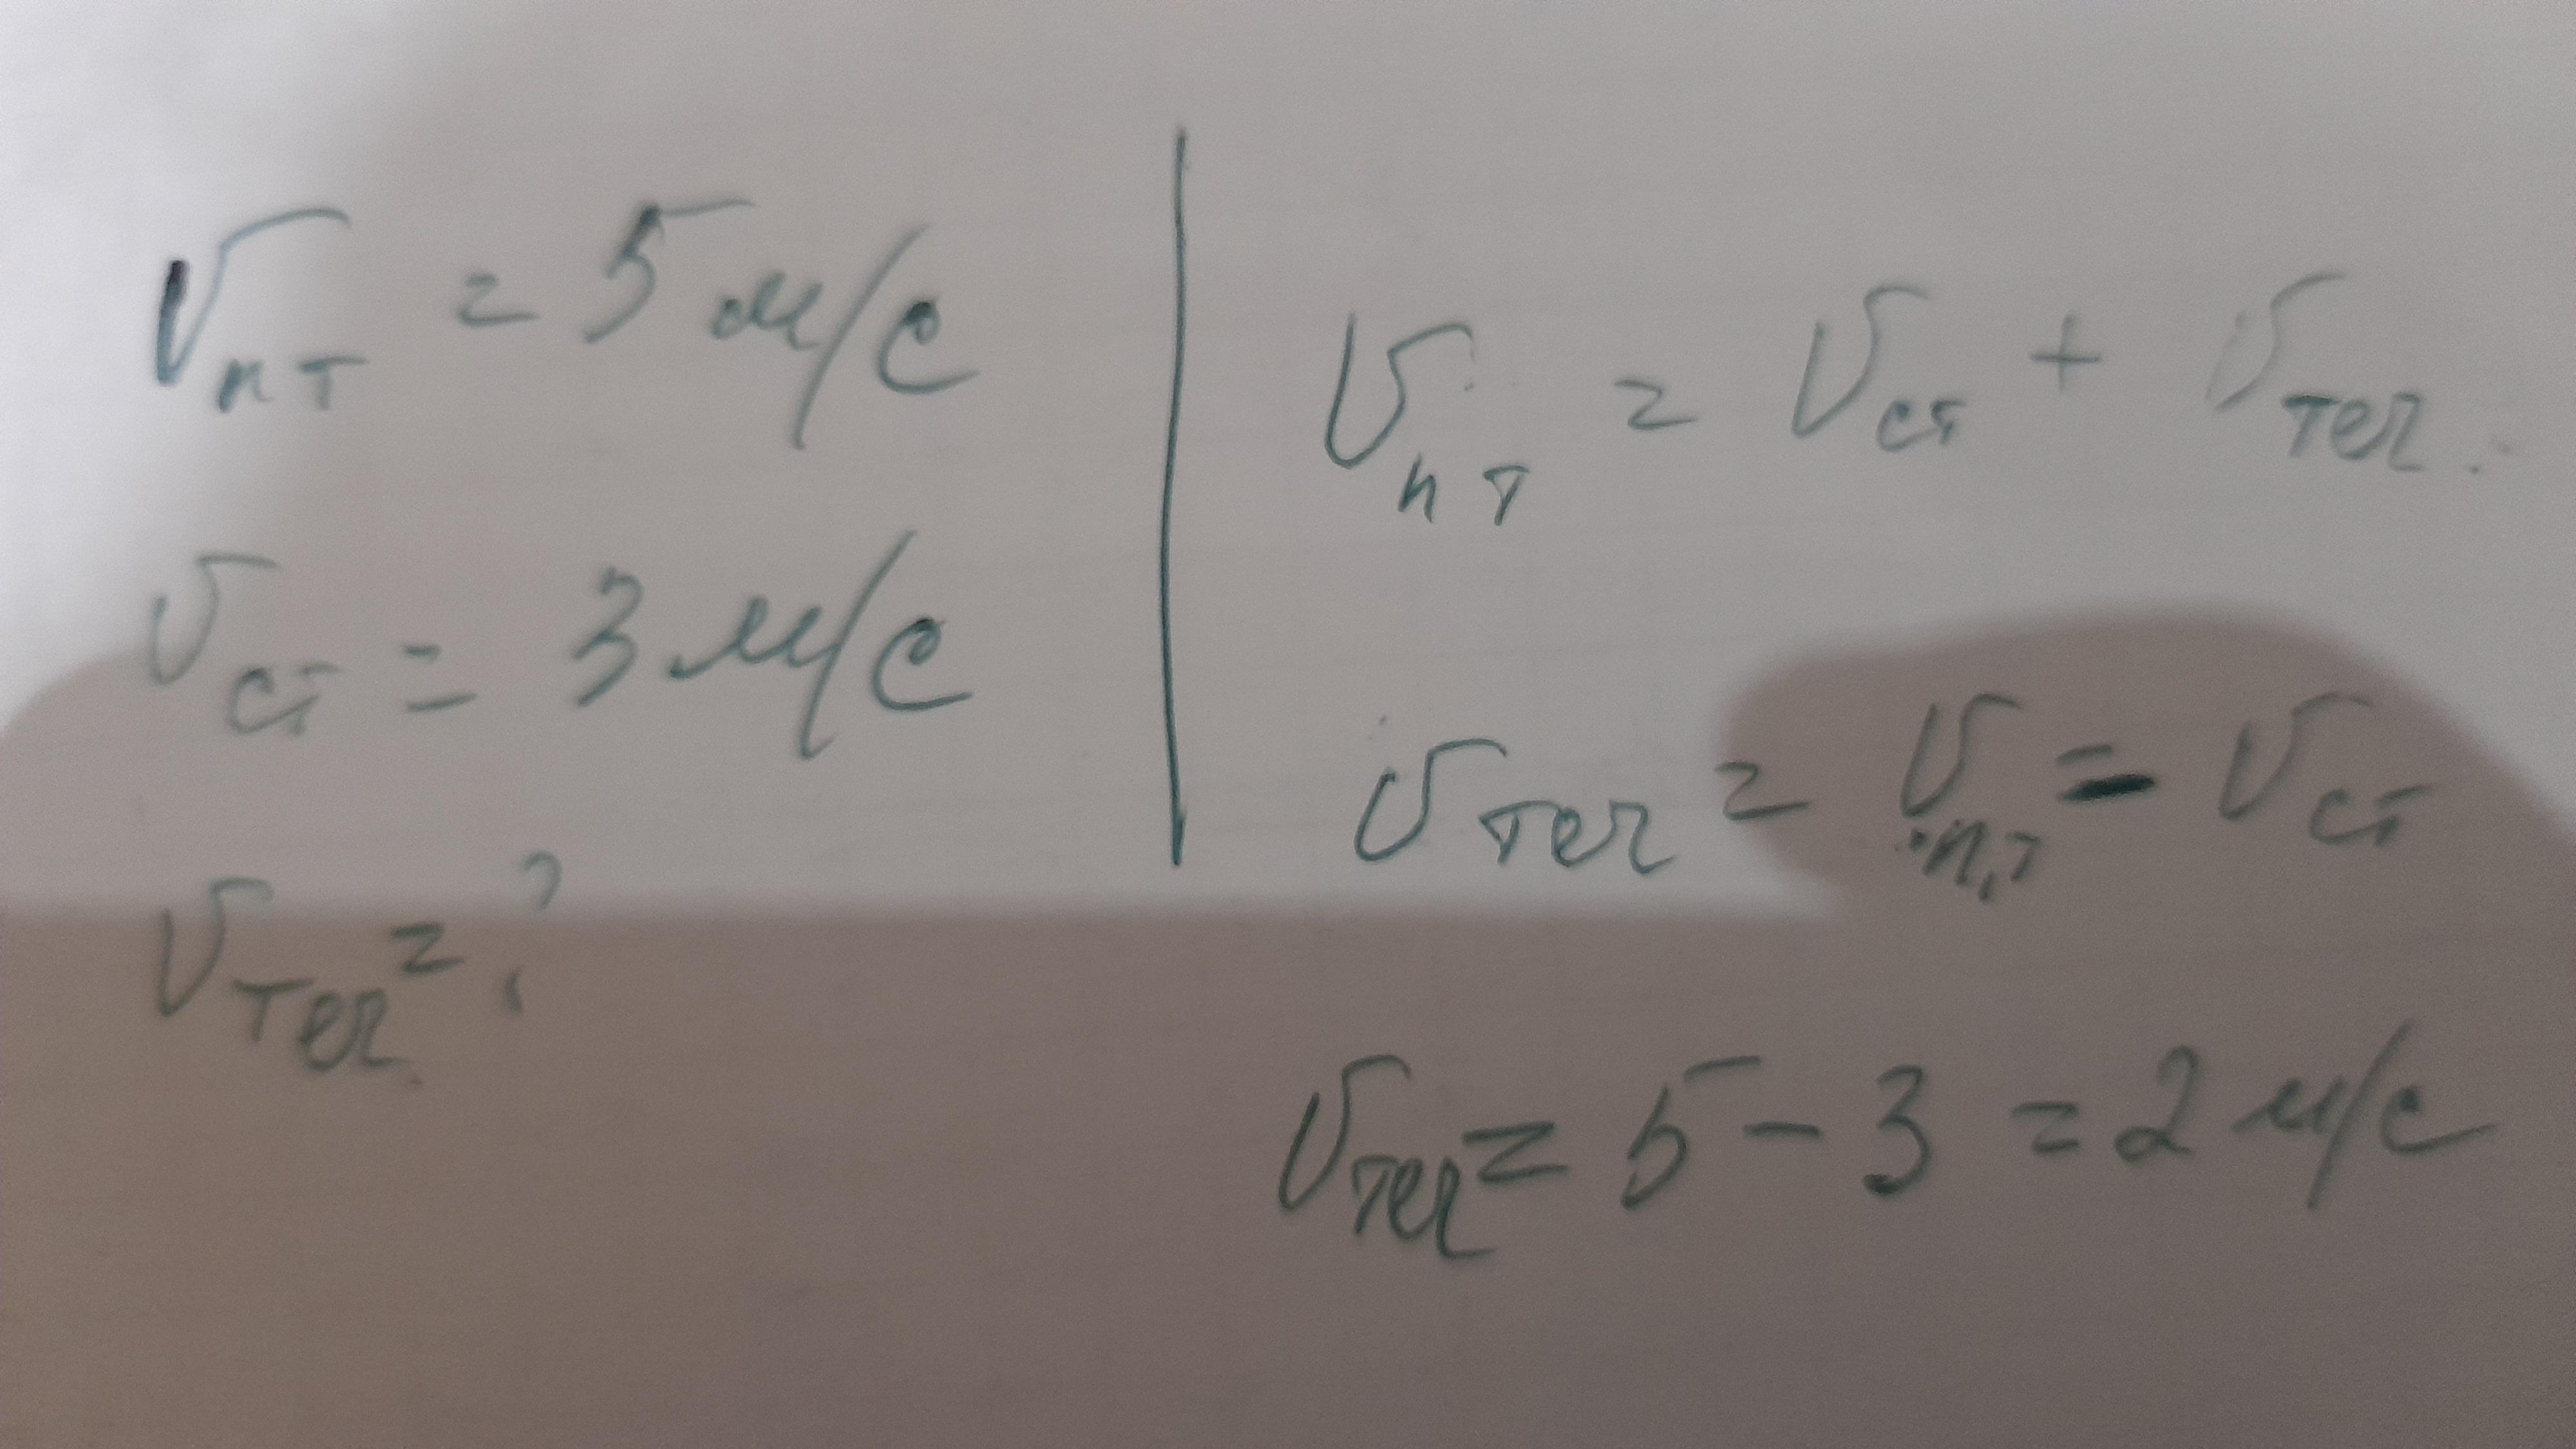 Vпт = 5 м/с
Vст = 3 м/с
Vтеч = ?
Vпт = Vст + Vтеч.
Vтеч = Vп.т - Vст
Vтеч = 5 - 3 = 2 м/с